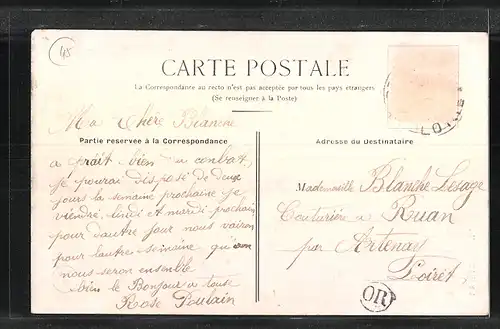 45
CARTE POSTALE
La Correspondance au recto n'est pas acceptée par tous les pays étrangers
(Se renseigner à la Poste)
LOIRET
Ma Chère Blanche
Partie réservée à la Correspondance
Adresse du Destinataire
a prait bien au conbat,
je pourai disposé de deux
jours la semaine prochaine je
viendré lindi et mardi prochain
pour dautre jour nous vairon
pour lautre semaine qu'on
nous seron ensenble
bien le Bonjour a tous
Rose Poulain
Mademoiselle Blanche Lesage
Couturière a Ruan
par Artenay
Loiret
OR